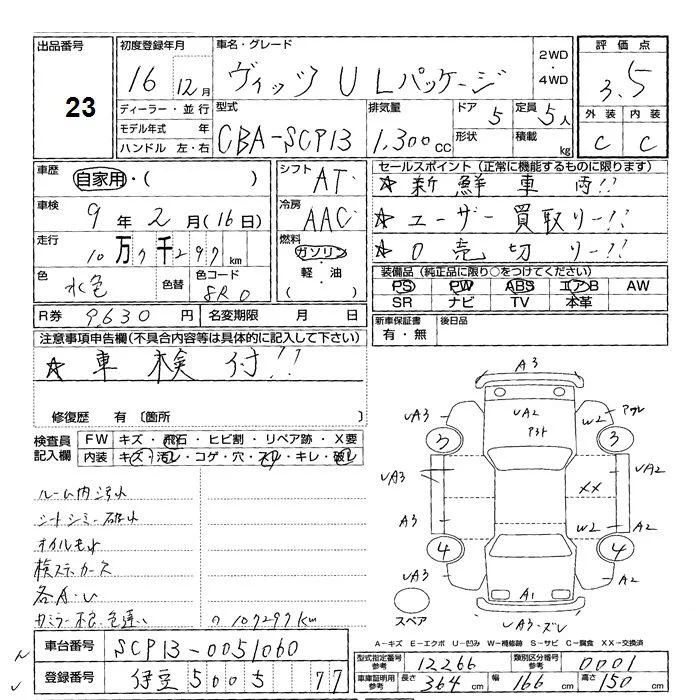 出品番号 23
初度登録年月 16 12月
車名・グレード ヴィッツ U Lパッケージ 2WD・4WD
評価点 3.5
外装 C 内装 C
ディーラー・並行
モデル年式 年
ハンドル 左・右
型式 CBA-SCP13
排気量 1,300cc
ドア 5
形状
定員 5人
積載 kg
車歴 自家用・( )
車検 9年2月(16日)
走行 10万7千297km
色 水色 色替 色コード 8R0
シフト AT
冷房 AAC
燃料 ガソリン・軽・油 ( )
セールスポイント(正常に機能するものに限ります)
☆新鮮車両!!
☆ユーザー買取り-!!
☆0売切り-!!
装備品(純正品に限り○をつけてください)
PS PW ABS エアB AW
SR ナビ TV 本革
R券 9,630円 名変期限 月 日
新車保証書 有・無 後日品
注意事項申告欄(不具合内容等は具体的に記入して下さい)
☆車検付!!
修復歴 有 〔箇所 〕
検査員記入欄 FW キズ・飛石・ヒビ割・リペア跡・X要
内装 キズ・汚レ・コゲ・穴・スレ・キレ・破レ
ルーム内汚れ
シートシミー破れ
オイルもれ
検ステッカース
各A・U
カミラー不良、色違い
107297km
車台番号 SCP13-0051060
登録番号 伊豆 500 5 77
A3
UA3 UA2 W2
P3ト
3 3
UA3 UA2
XX
A3 W2 A2
4 4
UA3 A1 A2
UA3-ズレ
スペア
A-キズ E-エクボ U-凹み W-補修跡 S-サビ C-腐食 XX-交換済
型式指定番号 参考 12266 類別区分番号 参考 0001
車庫証明用 参考 長さ 364cm 幅 166cm 高さ 150cm